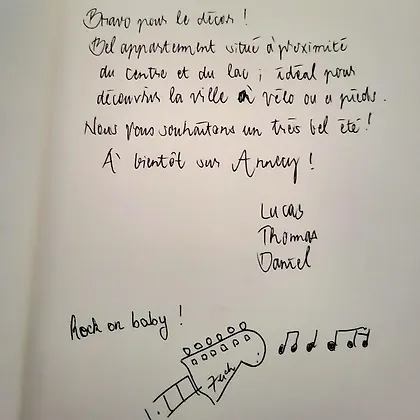 Bravo pour le décor !
Bel appartement situé à proximité
du centre et du lac ; idéal pour
découvrir la ville à vélo ou à pieds.
Nous vous souhaitons un très bel été !
À bientôt sur Annecy !
Lucas
Thomas
Daniel
Rock on baby !